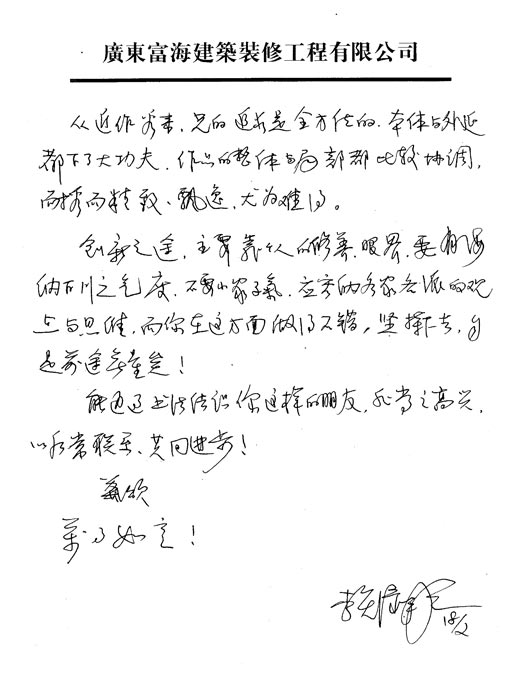 廣東富海建築裝修工程有限公司
从近作看来，兄的追求是全方位的，本体与外延
都下了大功夫，作品的整体与局部都比较协调，
而精致、飘逸，尤为难得。
创新之途，主要靠个人的修养、眼界，要有海
纳百川之气度，不要小家子气，应容纳各家各派的观
点与思维，而你在这方面做得不错，坚持下去，
前途无量矣！
能通过书法结识你这样的朋友，非常之高兴，
以后常联系、共同进步！
万事如意！
18/2